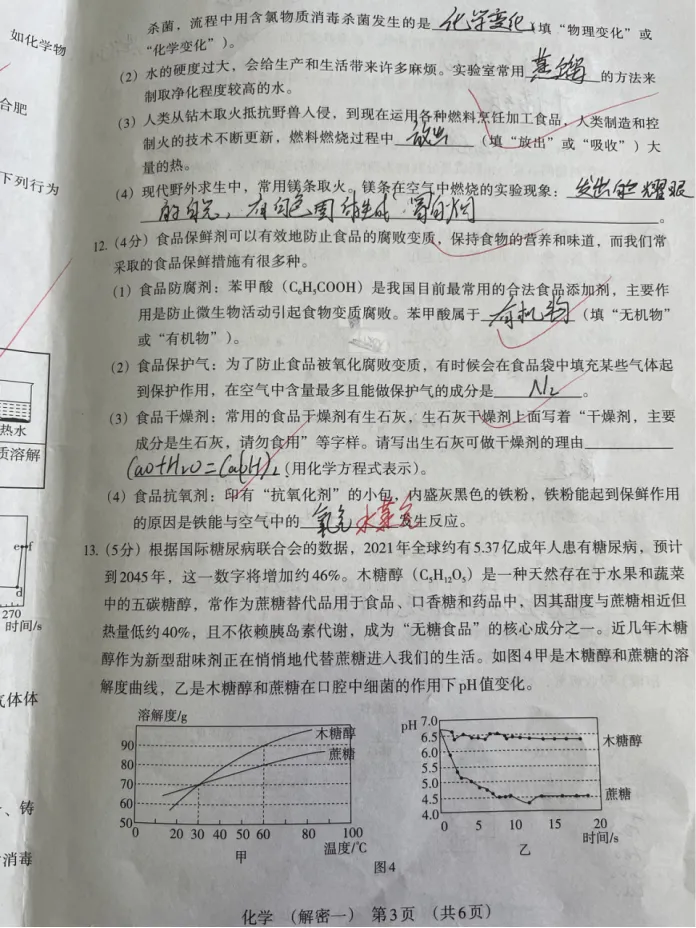 如化学物
合肥
下列行为
热水
质溶解
e f
d
270
时间/s
气体体
、铸
消毒
杀菌，流程中用含氯物质消毒杀菌发生的是 化学变化 （填“物理变化”或
“化学变化”）。
（2）水的硬度过大，会给生产和生活带来许多麻烦。实验室常用 蒸馏 的方法来
制取净化程度较高的水。
（3）人类从钻木取火抵抗野兽入侵，到现在运用各种燃料烹饪加工食品，人类制造和控
制火的技术不断更新，燃料燃烧过程中 放出 （填“放出”或“吸收”）大
量的热。
（4）现代野外求生中，常用镁条取火。镁条在空气中燃烧的实验现象： 发出的耀眼
的白光，有白色固体生成 冒白烟 。
12.（4分）食品保鲜剂可以有效地防止食品的腐败变质，保持食物的营养和味道，而我们常
采取的食品保鲜措施有很多种。
（1）食品防腐剂：苯甲酸（C₆H₅COOH）是我国目前最常用的合法食品添加剂，主要作
用是防止微生物活动引起食物变质腐败。苯甲酸属于 有机物 （填“无机物”
或“有机物”）。
（2）食品保护气：为了防止食品被氧化腐败变质，有时候会在食品袋中填充某些气体起
到保护作用，在空气中含量最多且能做保护气的成分是 N₂ 。
（3）食品干燥剂：常用的食品干燥剂有生石灰，生石灰干燥剂上面写着“干燥剂，主要
成分是生石灰，请勿食用”等字样。请写出生石灰可做干燥剂的理由
CaO+H₂O=Ca(OH)₂（用化学方程式表示）。
（4）食品抗氧剂：印有“抗氧化剂”的小包，内盛灰黑色的铁粉，铁粉能起到保鲜作用
的原因是铁能与空气中的 氧气 水蒸气 发生反应。
13.（5分）根据国际糖尿病联合会的数据，2021年全球约有5.37亿成年人患有糖尿病，预计
到2045年，这一数字将增加约46%。木糖醇（C₅H₁₂O₅）是一种天然存在于水果和蔬菜
中的五碳糖醇，常作为蔗糖替代品用于食品、口香糖和药品中，因其甜度与蔗糖相近但
热量低约40%，且不依赖胰岛素代谢，成为“无糖食品”的核心成分之一。近几年木糖
醇作为新型甜味剂正在悄悄地代替蔗糖进入我们的生活。如图4甲是木糖醇和蔗糖的溶
解度曲线，乙是木糖醇和蔗糖在口腔中细菌的作用下pH值变化。
溶解度/g
木糖醇
蔗糖
90
80
70
60
50
0 20 30 40 50 60 80 100
温度/℃
甲
pH 7.0
6.5
6.0
5.5
5.0
4.5
4.0
木糖醇
蔗糖
0 5 10 15 20
时间/s
乙
图4
化学 （解密一） 第3页 （共6页）